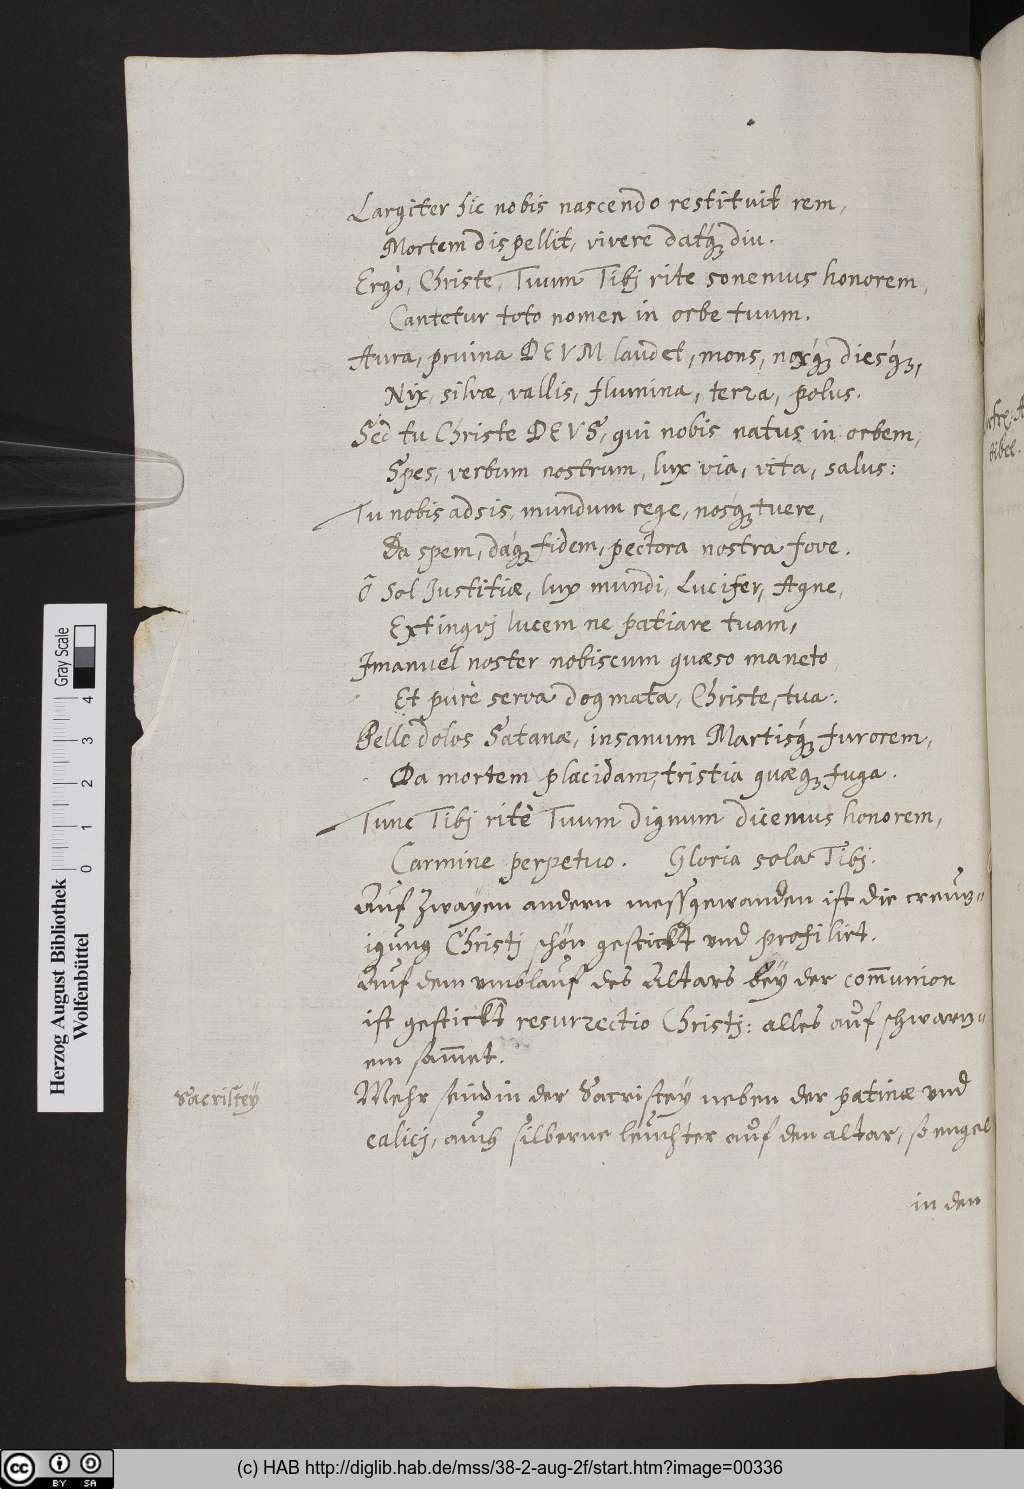 Largiter hic nobis nascendo restituit rem,
Mortem dispellit, vivere datq́ꝫ diu.
Ergò, Christe, Tuum Tibj rite sonemus honorem,
Cantetur toto nomen in orbe tuum.
Aura, pruina DEUM laudet, mons, noxq́ꝫ diesq́ꝫ,
Nix, silvæ, vallis, flumina, terra, polus.
Sed tu Christe DEUS, qui nobis natus in orbem,
Spes, verbum nostrum, lux via, vita, salus:
Tu nobis adsis, mundum rege, nosq́ꝫ tuere,
Da spem, dáqꝫ fidem, pectora nostra fove.
ô Sol Justitiæ, lux mundi, Lucifer, Agne,
Extinguj lucem ne patiare tuam,
Jmanuel noster nobiscum quæso maneto,
Et purè serva dogmata, Christe, tua:
Pelle dolos Satanæ, insanum Martisq́ꝫ furorem,
Da mortem placidam, tristia quæqꝫ fuga.
Tunc Tibj ritè Tuum dignum dicemus honorem,
Carmine perpetuo. Gloria sola Tibj.
Auf zwayen andern messgewanden ist die creuz-
igung Christj schön gestickt und profilirt.
Auf dem umblauf des Altars beÿ der com̄union
ist gestickt resurrectio Christj: alles auf schwarz-
em sam̄et.
Sacristeÿ
Mehr seind in der Sacristeÿ neben der patinæ und
calicj, auch silberne leuchter auf den altar, so engel
in den
Herzog August Bibliothek
Wolfenbüttel
0 1 2 3 4
Gray Scale
cc BY SA
(c) HAB http://diglib.hab.de/mss/38-2-aug-2f/start.htm?image=00336